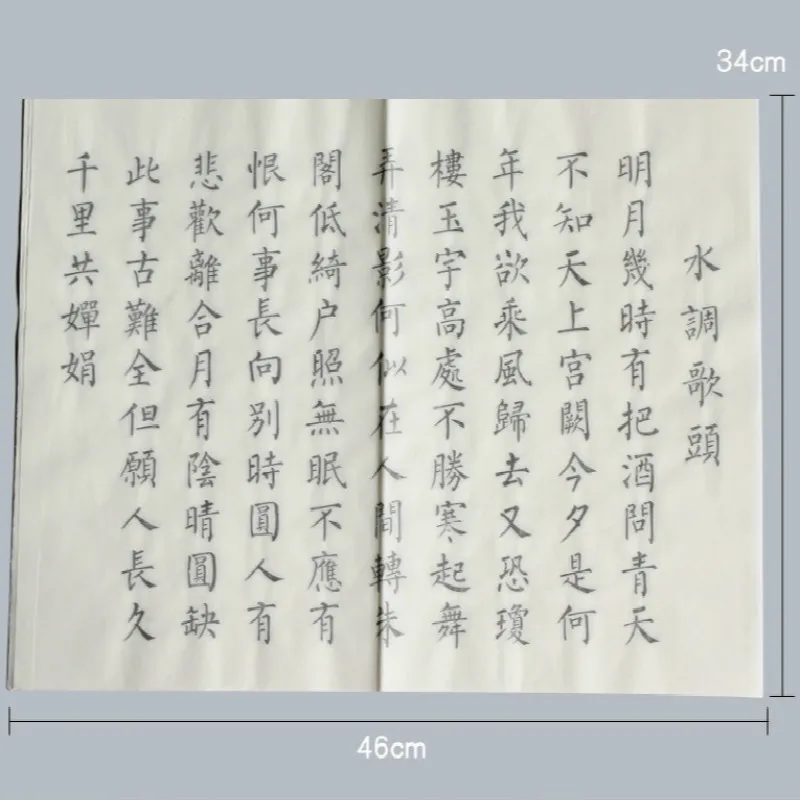 水調歌頭
明月幾時有把酒問青天
不知天上宮闕今夕是何
年我欲乘風歸去又恐瓊
樓玉宇高處不勝寒起舞
弄清影何似在人間轉朱
閣低綺户照無眠不應有
恨何事長向別時圓人有
悲歡離合月有陰晴圓缺
此事古難全但願人長久
千里共嬋娟
34cm
46cm